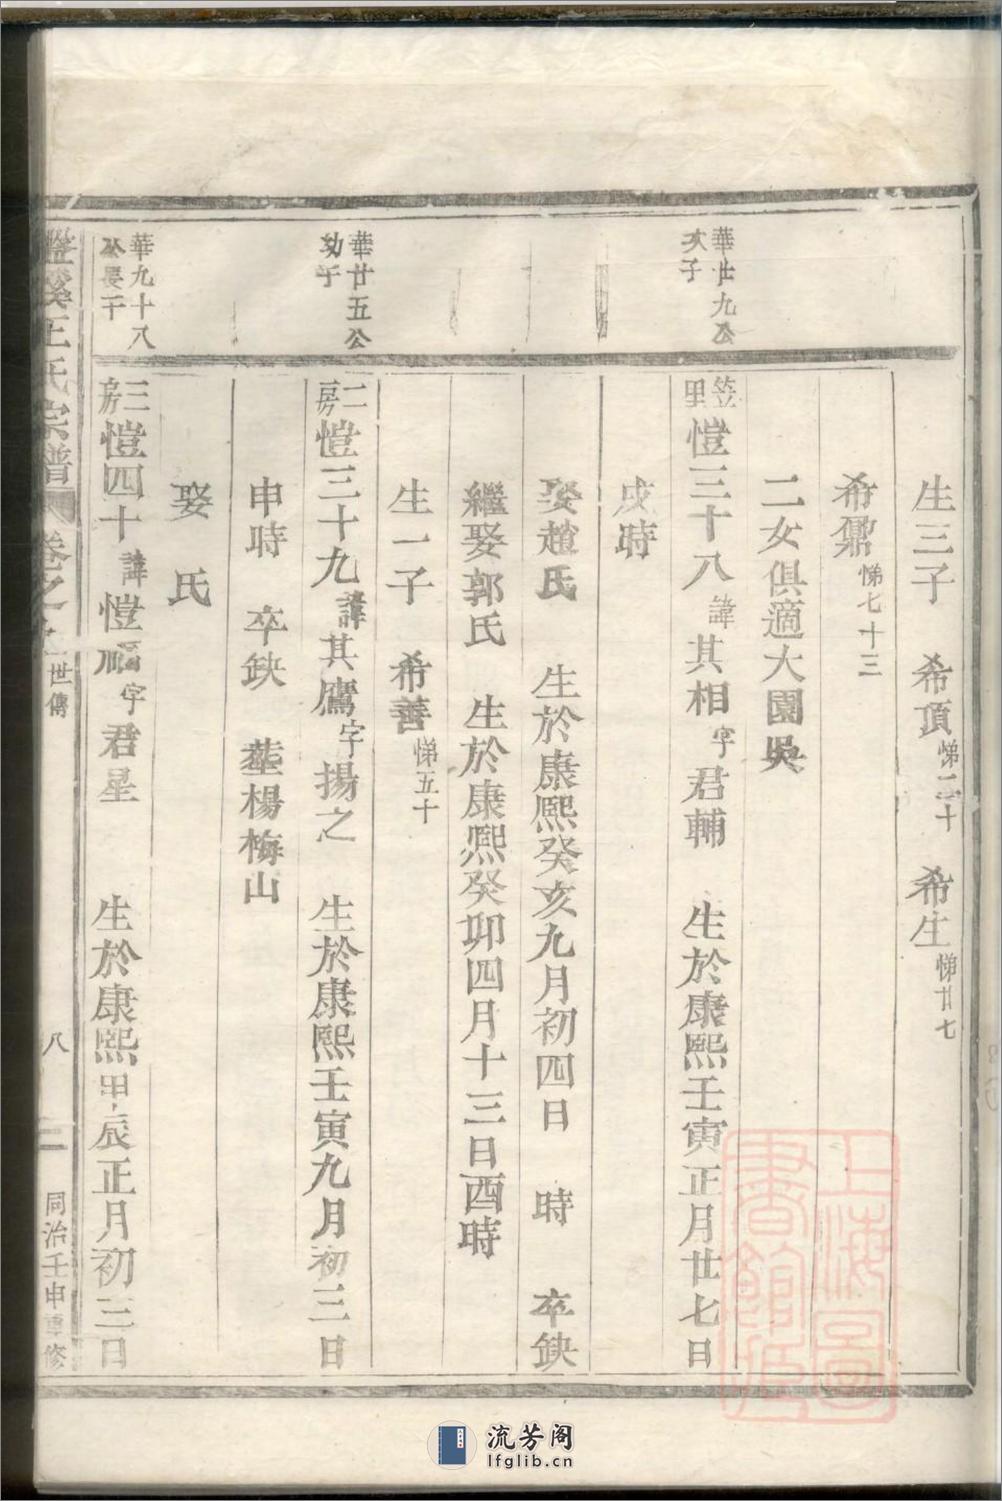 生三子　希頂悌二十　希生悌廿七
希鼐悌七十三
二女俱適大園吳
華廿九公
次子
笠里愷三十八諱其相字君輔　生於康熙壬寅正月廿七日
戌時
娶趙氏　生於康熙癸亥九月初四日　時　卒缺
繼娶郭氏　生於康熙癸卯四月十三日酉時
生一子　希善悌五十
華廿五公
幼子
二房愷三十九諱其鷹字揚之　生於康熙壬寅九月初三日
申時　卒缺　塟楊梅山
娶　氏
華九十八
公長子
三房愷四十諱愷 字君星　生於康熙甲辰正月初三日
王氏宗譜　卷之　世傳　八　同治壬申重修
上海圖書館藏
流芳阁
lfglib.cn